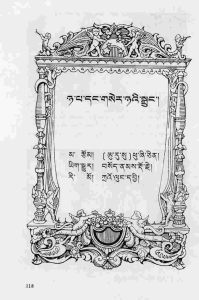 ཉ་པ་དང་གསེར་ཉའི་སྒྲུང་།
མ་ རྩོམ། (ཨུ་རུ་སུ) ཕུ་ཞི་ཅིན།
ཡིག་སྒྱུར། བསོད་ནམས་རྡོ་རྗེ།
རི་ མོ། ཀྲའོ་ལུང་དབྱི།
118